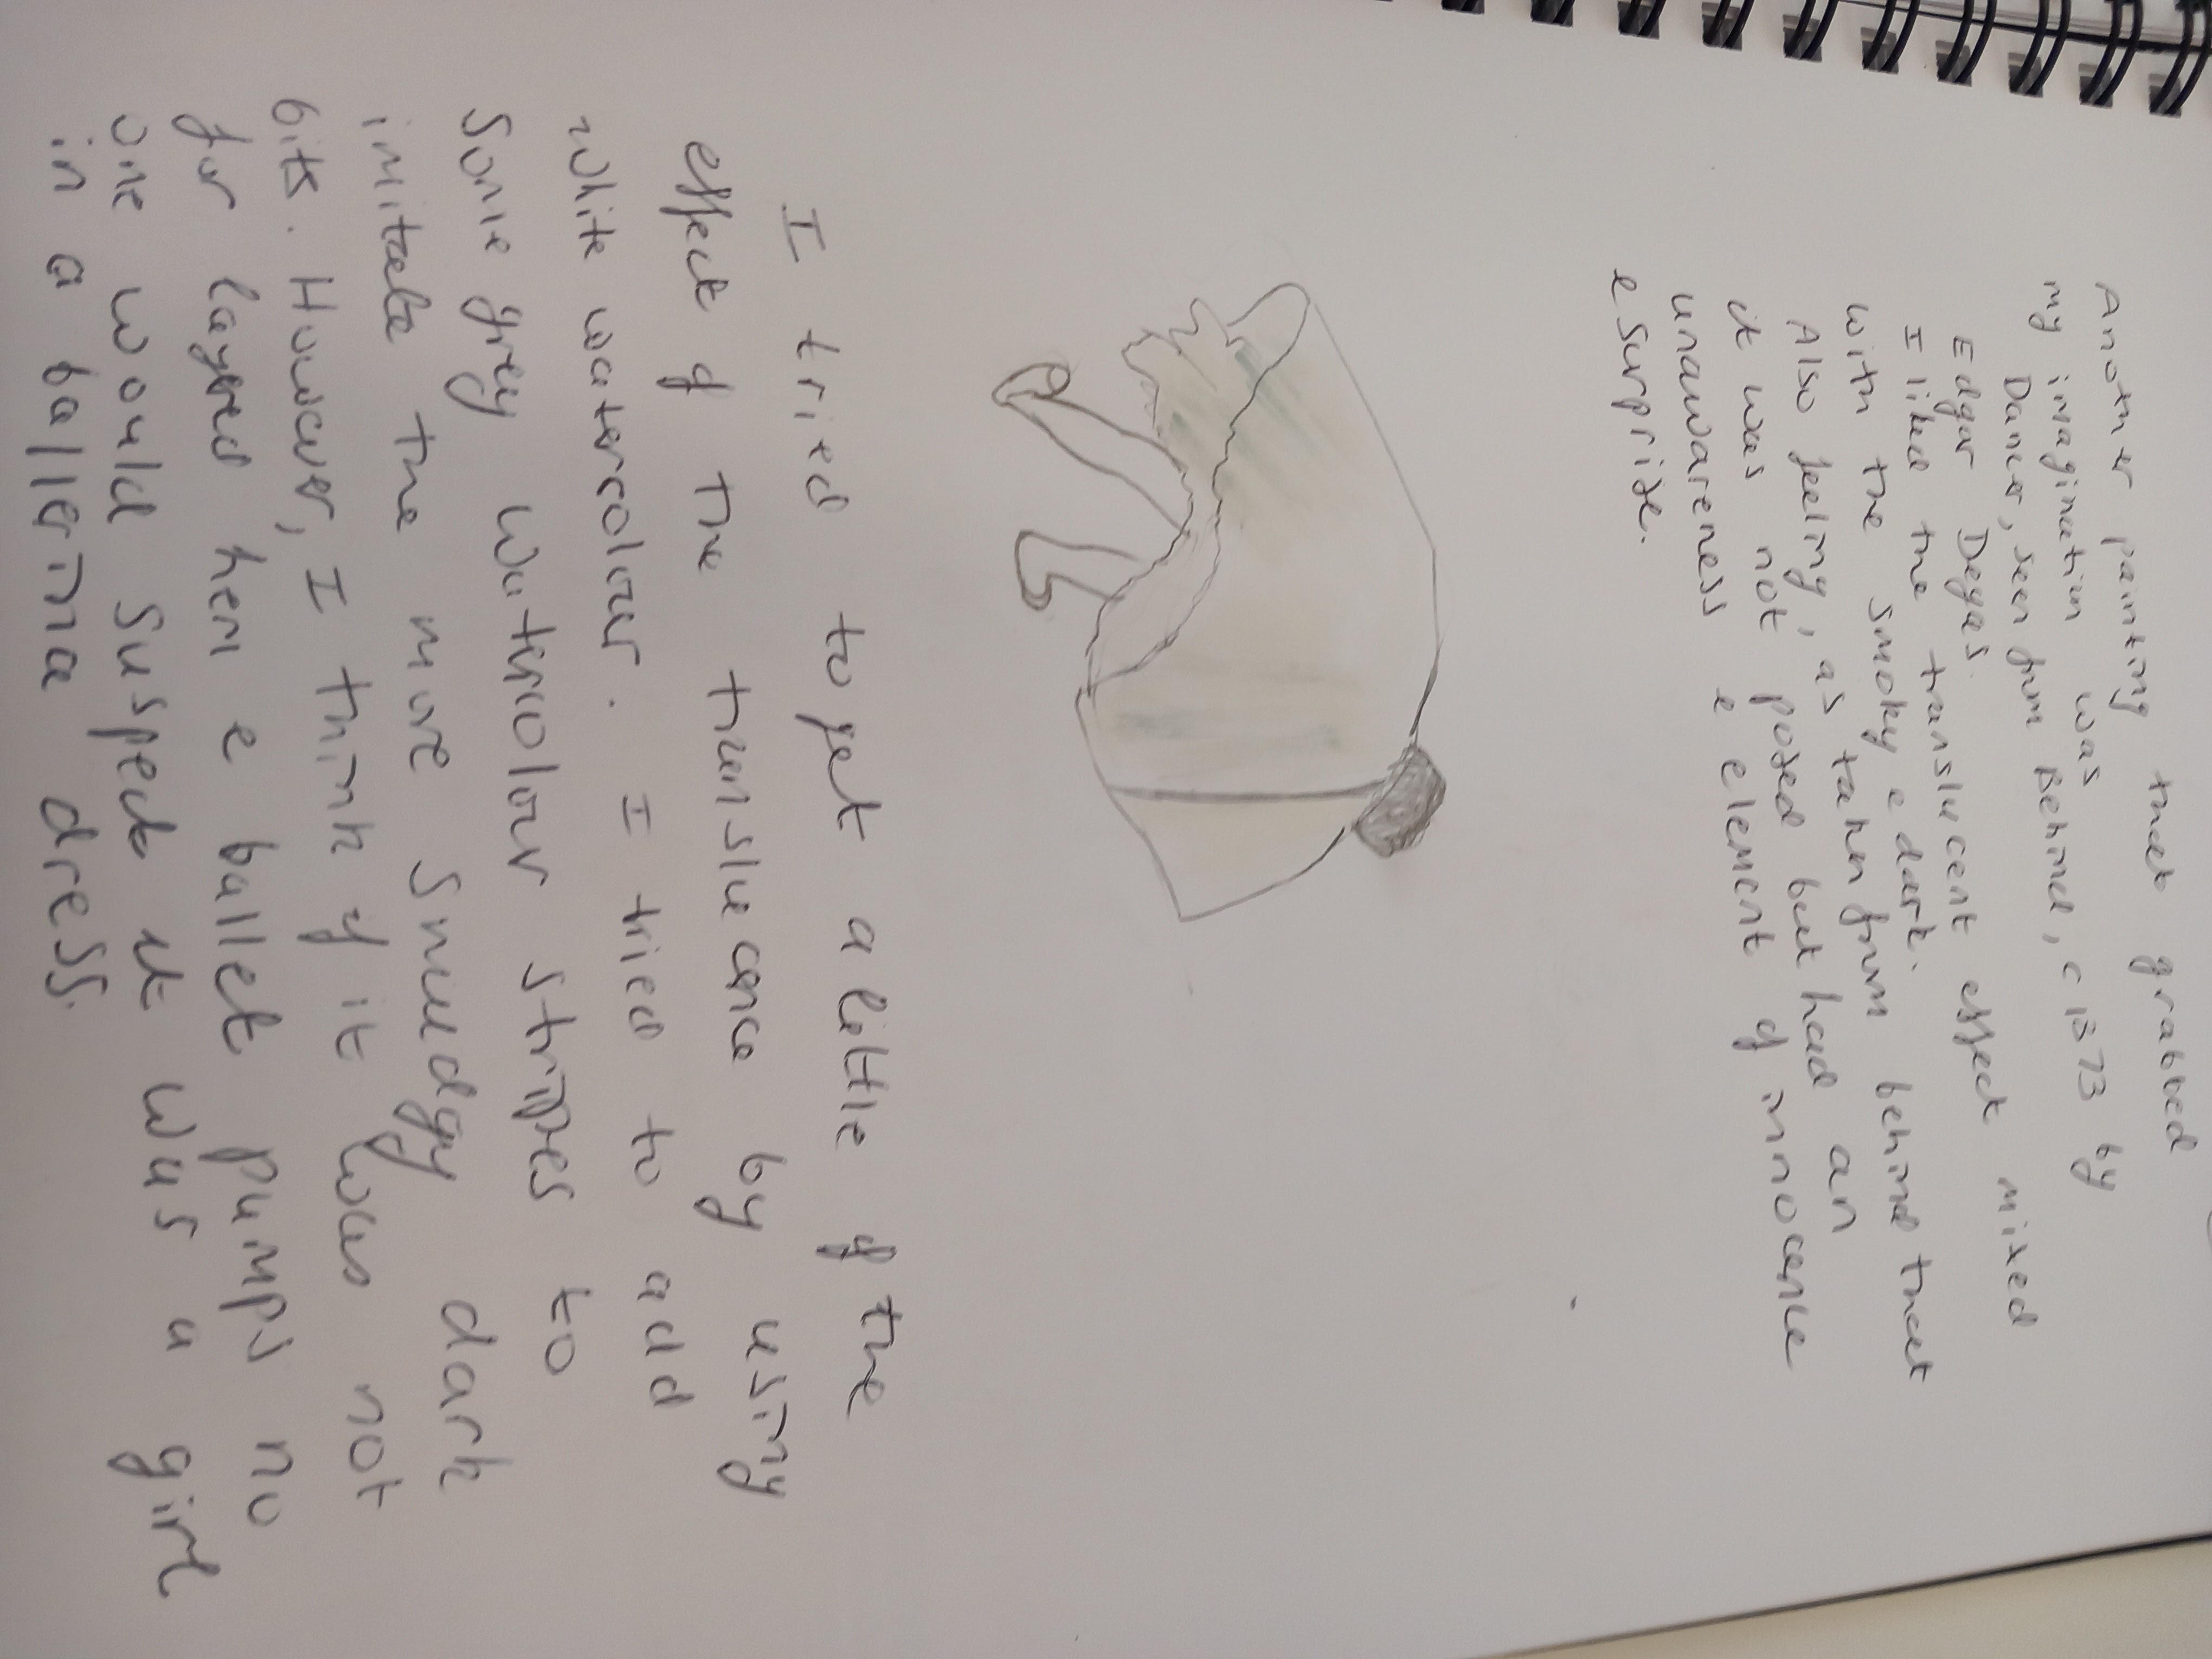 Another painting that grabbed
my imagination was
Dancer, seen from Behind, c 1873 by
Edgar Degas.
I liked the translucent effect mixed
with the smoky e dark.
Also feeling, as taken from behind that
it was not posed but had an
unawareness e element of innocence
e surprize.
I tried to get a little of the
effect of the translucence by using
white watercolour. I tried to add
some grey watercolour stripes to
imitate the more smudgy dark
bits. However, I think if it was not
for layered hem e ballet pumps no
one would suspect it was a girl
in a ballerina dress.